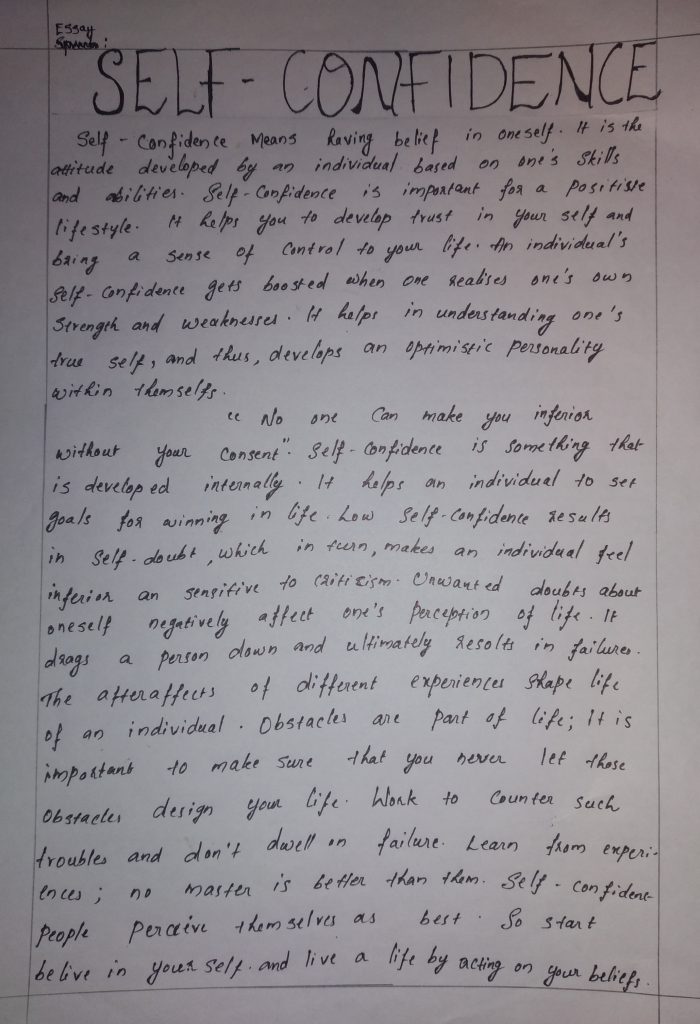 Essay
SELF - CONFIDENCE
Self - Confidence Means having belief in oneself. It is the
attitude developed by an individual based on one's skills
and abilities. Self-Confidence is important for a positive
lifestyle. It helps you to develop trust in your self and
bring a sense of control to your life. An individual's
self-confidence gets boosted when one realises one's own
strength and weaknesses. It helps in understanding one's
true self, and thus, develops an optimistic personality
within themselfs.
“ No one can make you inferior
without your consent”. Self-confidence is something that
is developed internally. It helps an individual to set
goals for winning in life. Low self-confidence results
in self-doubt, which in turn, makes an individual feel
inferior an sensitive to criticism. Unwanted doubts about
oneself negatively affect one's perception of life. It
drags a person down and ultimately results in failures.
The afteraffects of different experiences shape life
of an individual. Obstacles are part of life; it is
important to make sure that you never let those
obstacles design your life. Work to counter such
troubles and don't dwell on failure. Learn from experi-
ences; no master is better than them. Self - confident
people perceive themselves as best. So start
belive in your self. and live a life by acting on your beliefs.